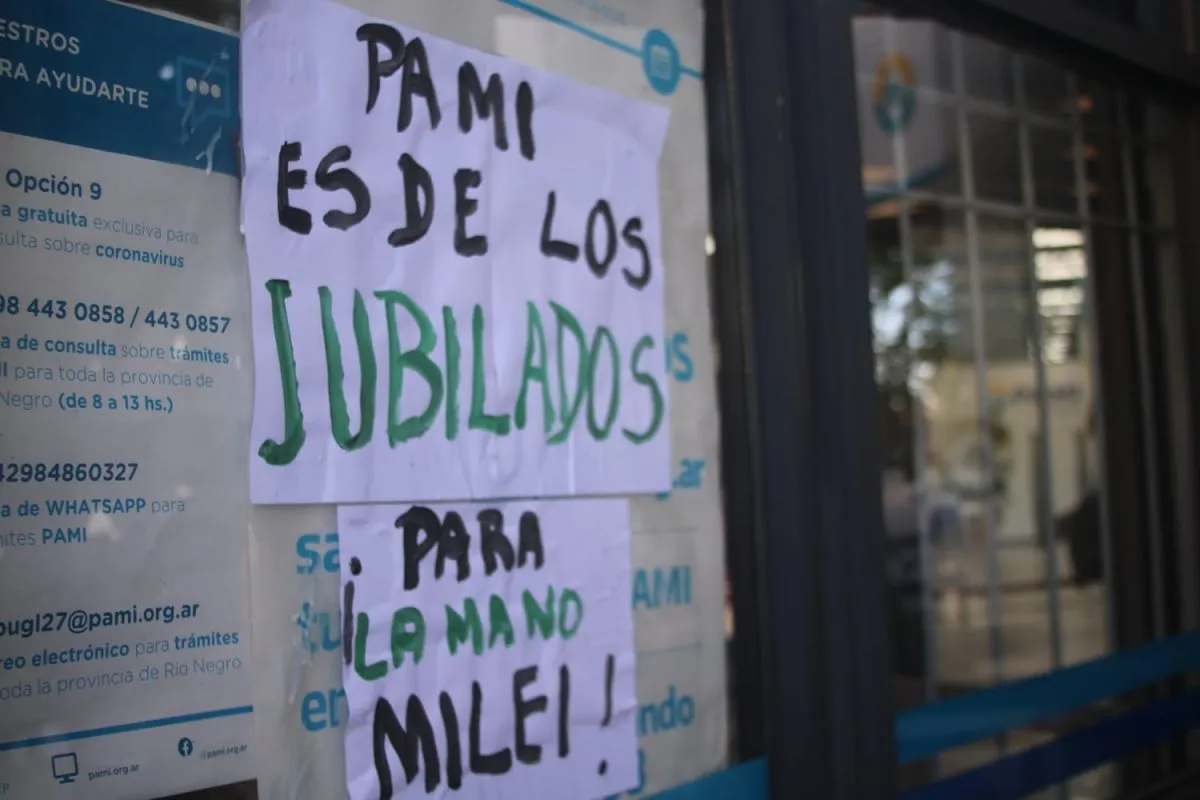 ESTROS
RA AYUDARTE
Opción 9
a gratuita exclusiva para
sulta sobre coronavirus
98 443 0858 / 443 0857
a de consulta sobre trámites
I para toda la provincia de
Negro (de 8 a 13 hs.)
42984860327
a de WHATSAPP para
mites PAMI
ougl27@pami.org.ar
reo electrónico para trámites
toda la provincia de Río Negro
pami.org.ar
@pami.org.ar
PAMI
ES DE LOS
JUBILADOS
¡PARA
LA MANO
MILEI!
sa
tu
en
os
.ar
AMI
ndo